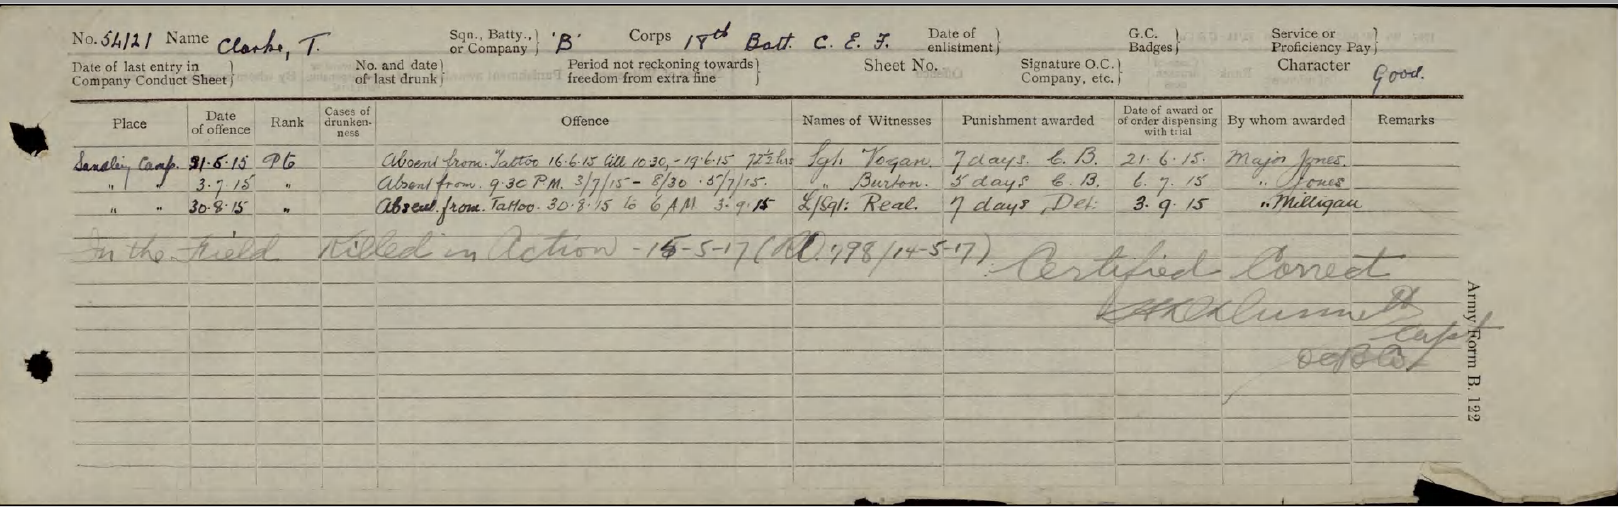 No. 54121 Name Clarke, T. Sqn., Batty., or Company 'B' Corps 18th Batt. C. E. F. Date of enlistment G.C. Badges Service or Proficiency Pay
Date of last entry in Company Conduct Sheet No. and date of last drunk Period not reckoning towards freedom from extra fine Sheet No. Signature O.C. Company, etc. Character Good.
Place Date of offence Rank Cases of drunken-ness Offence Names of Witnesses Punishment awarded Date of award or of order dispensing with trial By whom awarded Remarks
Sandling Camp. 21-6-15 Pte Absent from. Tattoo 16-6-15 till 10:30,-19-6-15 72½ hrs Sgt. Vogan. 7 days. C. B. 21-6-15. Major Jones.
" " 3-7-15 " Absent from. 9-30 P.M. 3/7/15 - 8/30 . 5/7/15. " Burton. 5 days C. B. 6. 7. 15 " Jones
" " 30-8-15 " Absent. from. Tattoo. 30-8-15 to 6 A.M 3-9-15 L/Sgt: Real. 7 days Det: 3. 9. 15 " Milligan
In the Field Killed in Action - 15-5-17 ( 798/14-5-17)
Certified Correct
Capt
Army Form B. 122